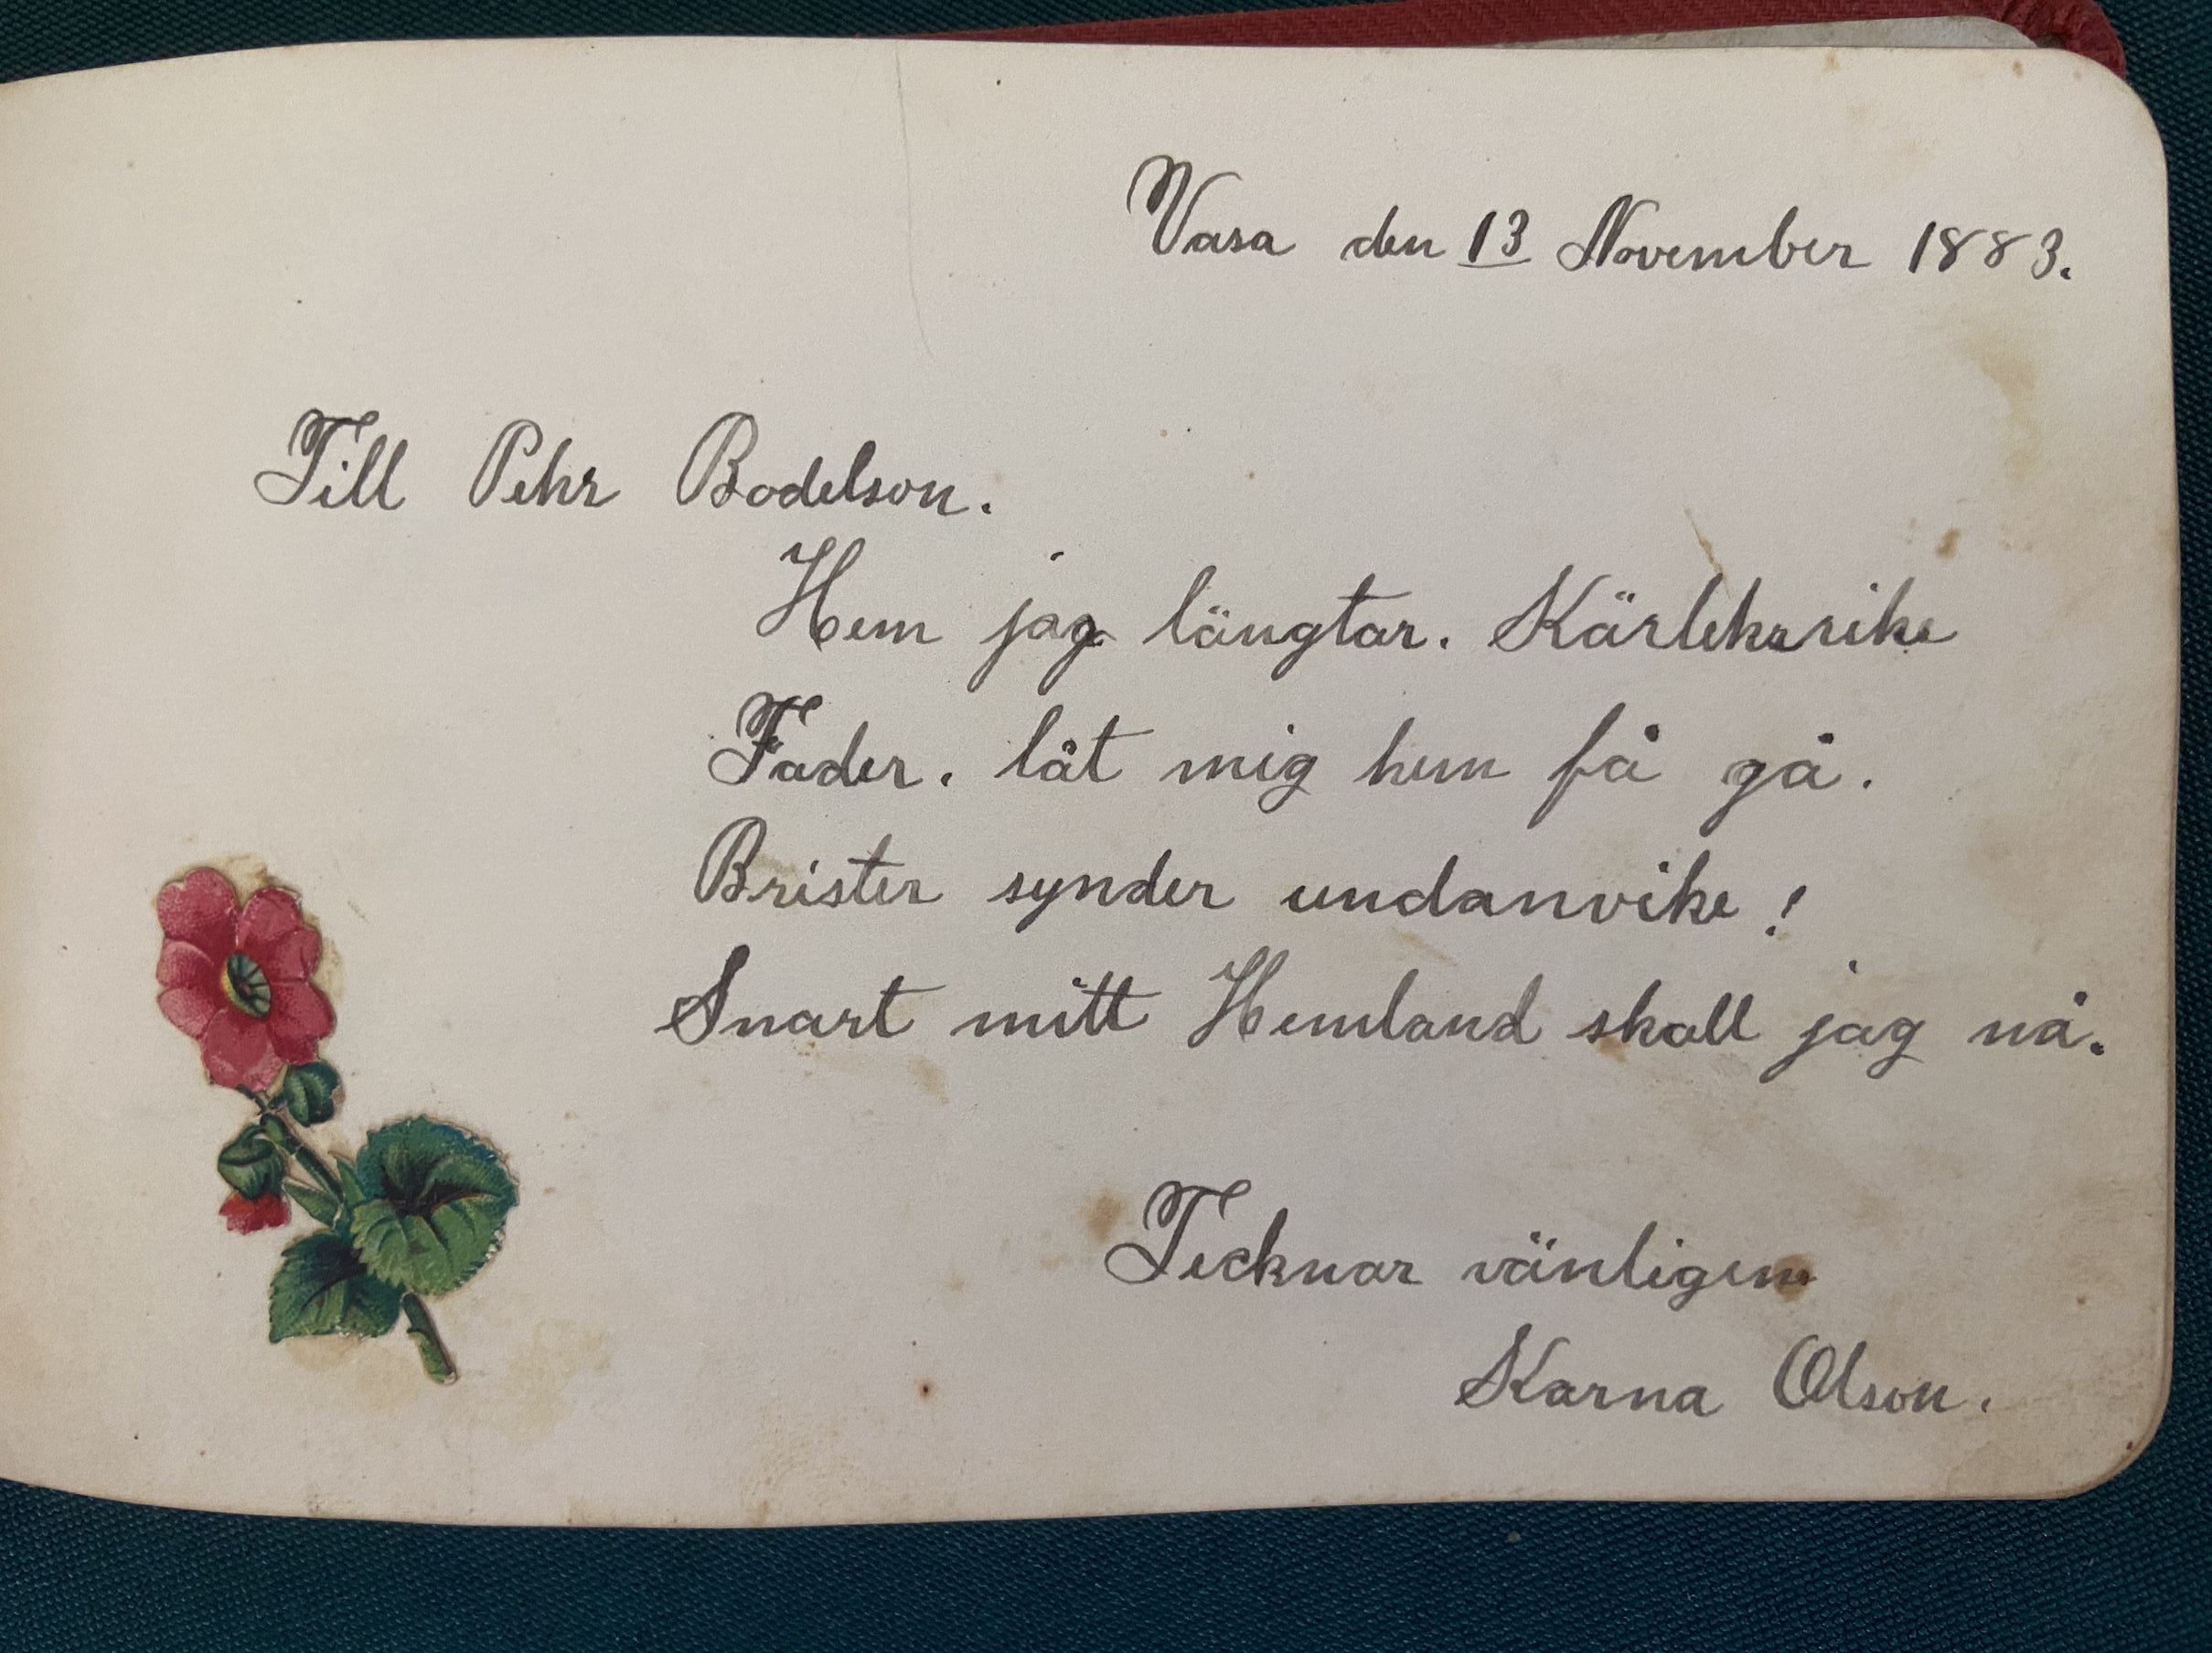 Vasa den 13 November 1883.
Till Pehr Bodelson.
Hem jag längtar. Kärleksrike
Fader. låt mig hem få gå.
Brister synder undanvike!
Snart mitt Hemland skall jag nå.
Tecknar vänligen
Karna Olson.